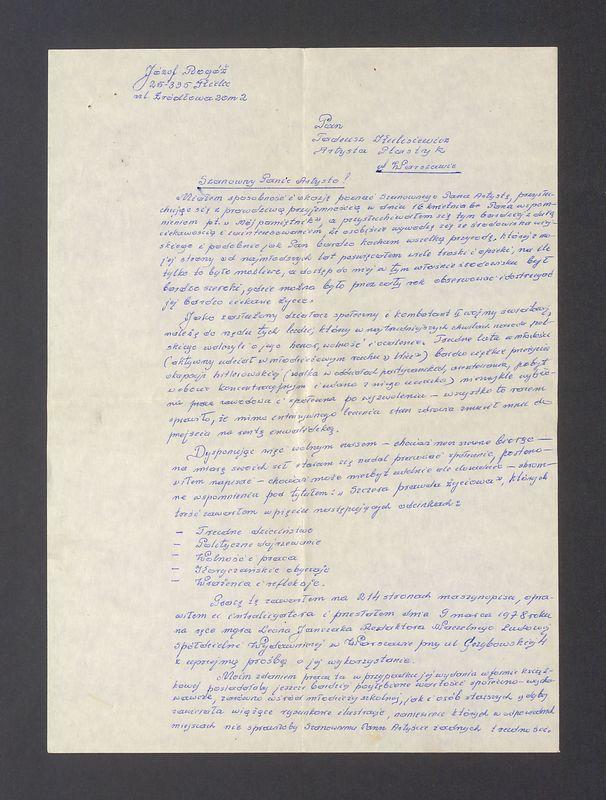 Józef Rogóż
25-335 Kielce
ul. Źródłowa 20 m 2
Pan
Tadeusz Kulisiewicz
Artysta Plastyk
w Warszawie
Szanowny Panie Artysto!
Miałem sposobność i okazję poznać Szanownego Pana Artystę, przysłu-
chując się z prawdziwą przyjemnością w dniu 16 kwietnia br Pana wspom-
nieniom pt. „Mój pamiętnik”, a przysłuchiwałem się tym bardziej z dużą
ciekawością i zainteresowaniem, że osobiście wywodzę się ze środowiska wiej-
skiego i podobnie jak Pan bardzo kocham wszelką przyrodę, której z mo-
jej strony od najmłodszych lat poświęcałem wiele troski i opieki, na ile
tylko to było możliwe, a dostęp do niej w tym właśnie środowisku był
bardzo szeroki, gdzie można było przez cały rok obserwować i dostrzegać
jej bardzo ciekawe życie.
Jako zasłużony działacz społeczny i kombatant II wojny światowej,
należę do rzędu tych ludzi, którzy w najtrudniejszych chwilach narodu pol-
skiego walczyli o jego honor, wolność i ocalenie. Trudne lata młodości
(aktywny udział w młodzieżowym ruchu „Wici”) bardzo ciężkie przeżycia
okupacji hitlerowskiej (walka w oddziałach partyzanckich, aresztowanie, pobyt
w obozie koncentracyjnym i udana z niego ucieczka) niezwykle wytężo-
na praca zawodowa i społeczna po wyzwoleniu – wszystko to razem
sprawiło, że mimo intensywnego leczenia stan zdrowia zmusił mnie do
przejścia na rentę inwalidzką.
Dysponując więc wolnym czasem – chociaż nieznośnie bierze –
na miarę swoich sił staram się nadal pracować społecznie, postano-
wiłem napisać – chociaż może niezbyt udolnie ale dosadnie – skrom-
ne wspomnienia pod tytułem: „Szczera prawda życiowa”, których
treść zawarłem w pięciu następujących odcinkach:
– Trudne dzieciństwo
– Polityczne dojrzewanie
– Wolność i praca
– Koryczańskie obyczaje
– Wrażenia i refleksje.
Pracę tę zawarłem na 214 stronach maszynopisu, opra-
wiłem u introligatora i przesłałem dnia 9 marca 1978 roku
na ręce mgra Leona Janczaka Redaktora Naczelnego Ludowej
Spółdzielni Wydawniczej w Warszawie przy ul Grzybowskiej 4
z uprzejmą prośbą o jej wykorzystanie.
Moim zdaniem praca ta w przypadku jej wydania w formie książ-
kowej posiadałaby jeszcze bardziej pogłębione wartości społeczno-wycho-
wawcze, zarówno wśród młodzieży szkolnej, jak i osób starszych gdyby
zawierała wiążące rysunkowe ilustracje, naniesienie których w odpowiednich
miejscach nie sprawiłoby Szanownemu Panu Artyście żadnych trudności.